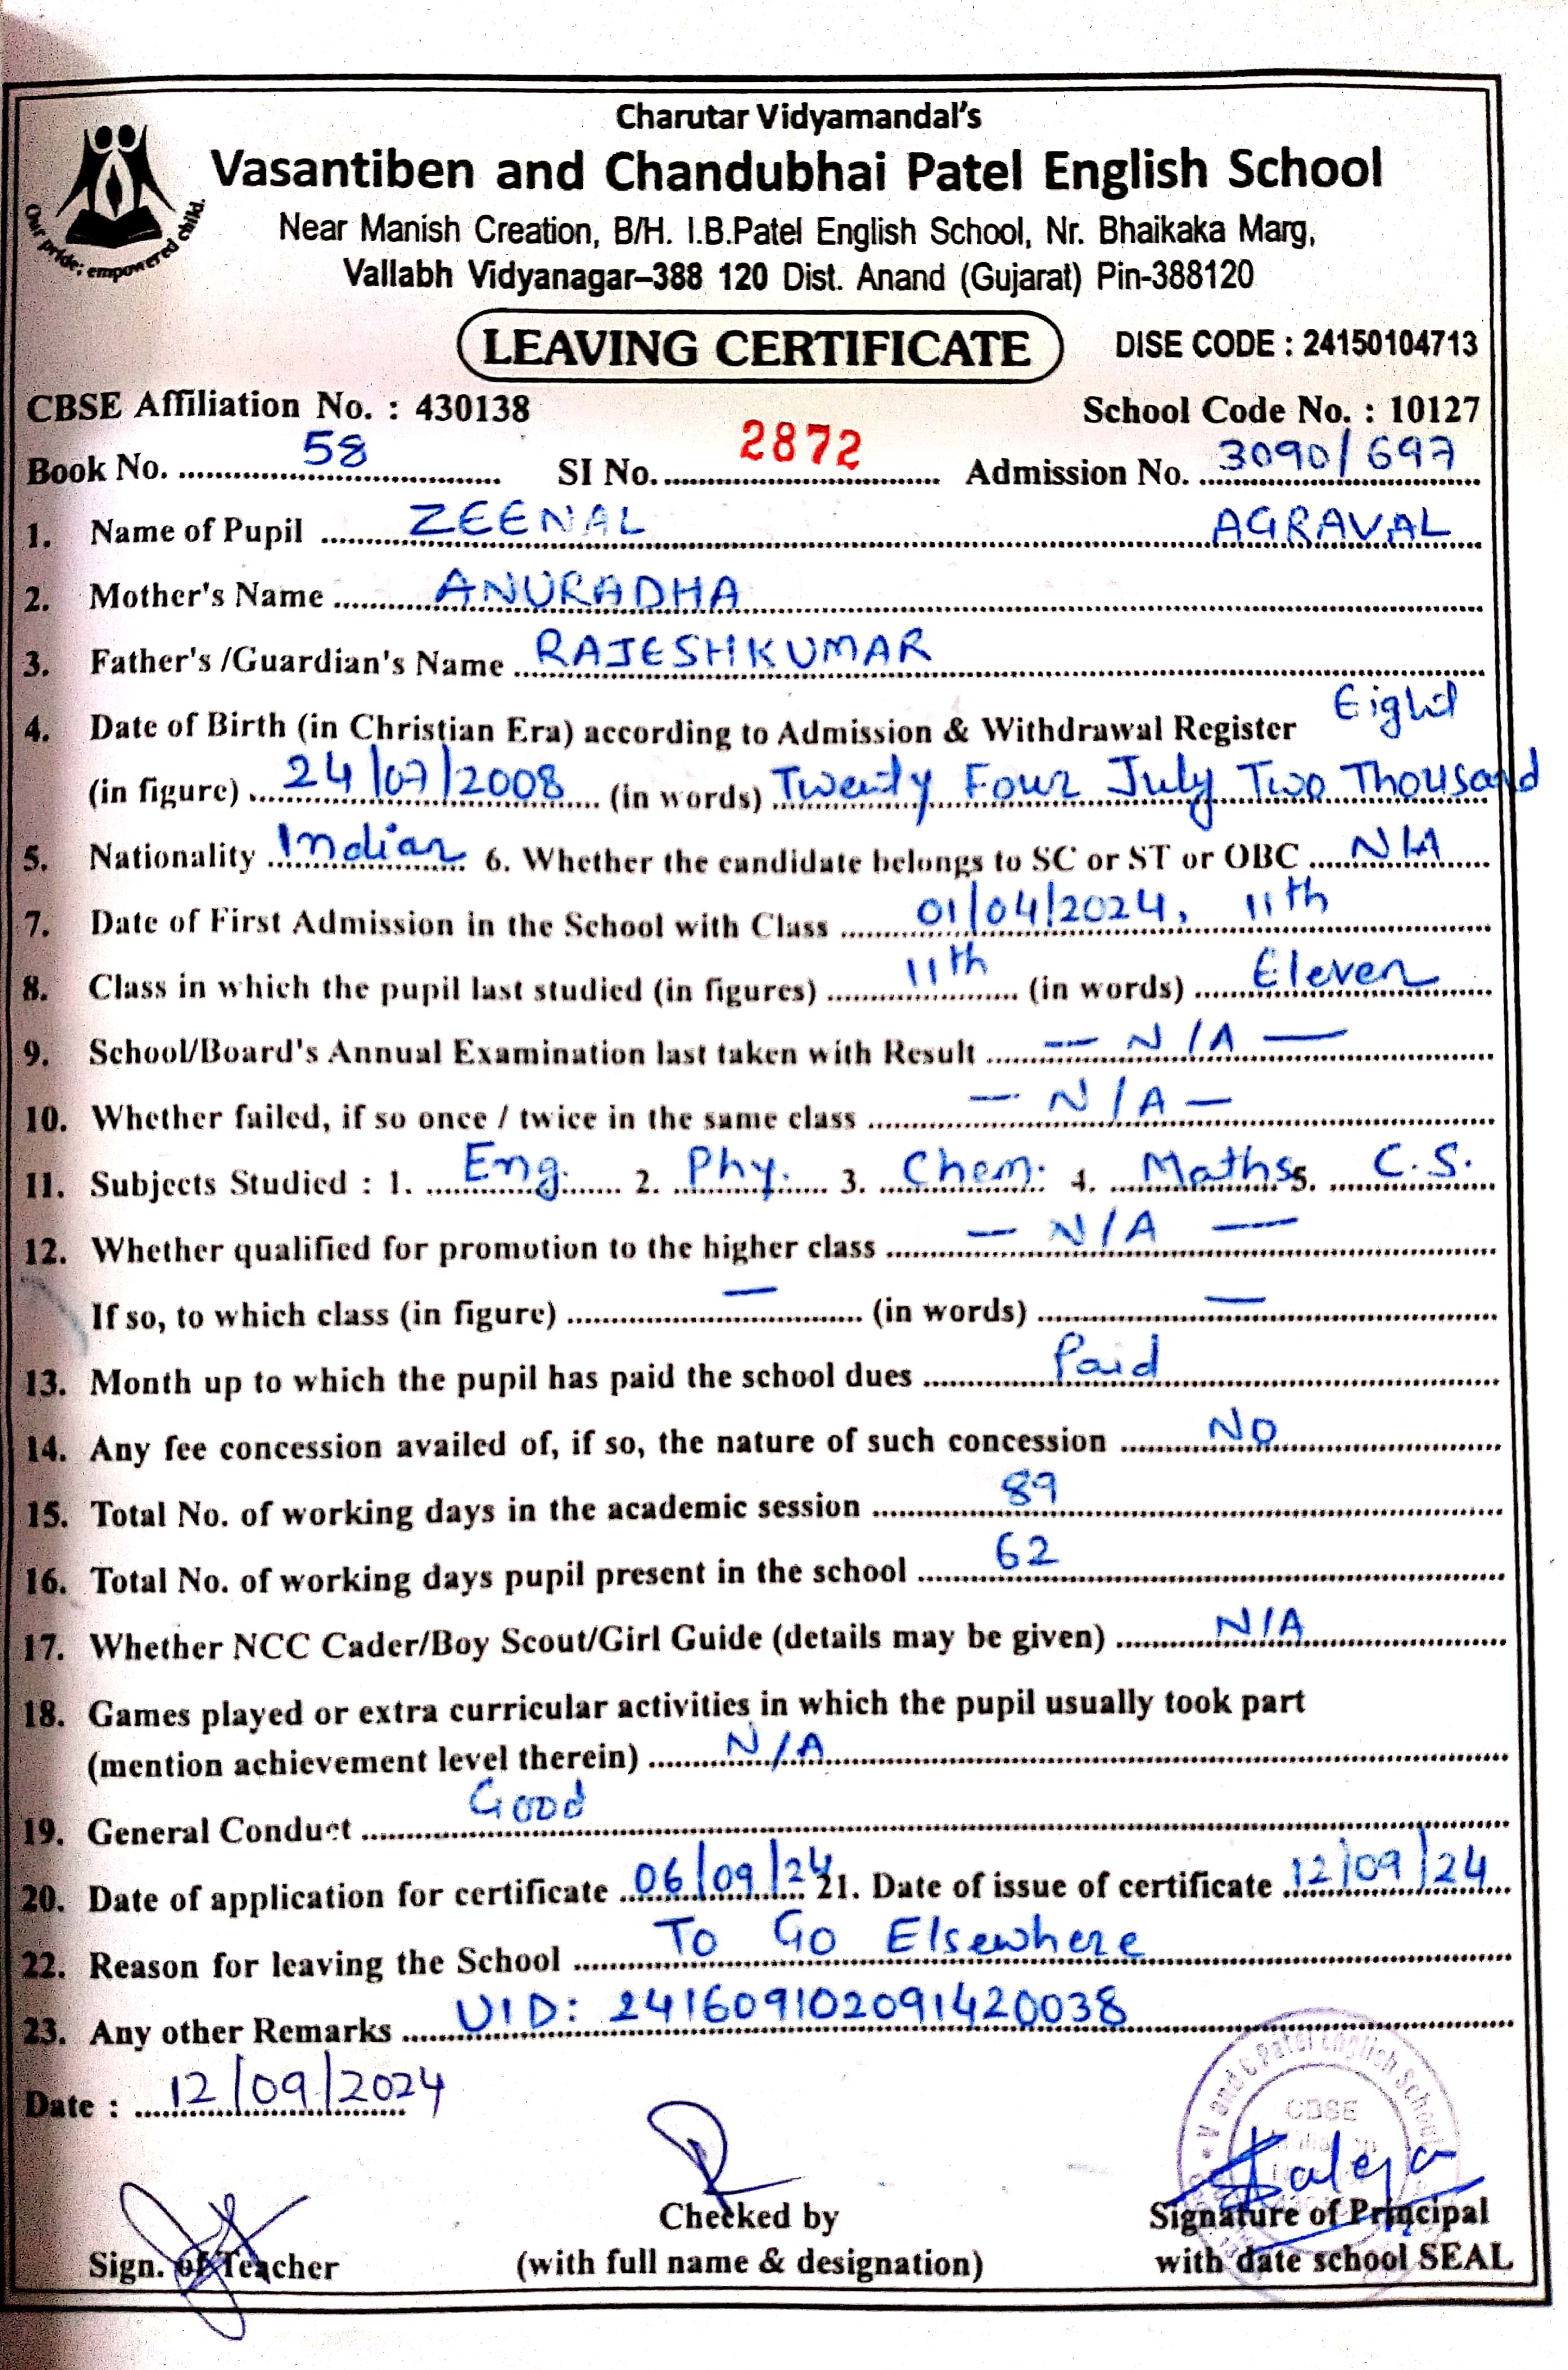 Charutar Vidyamandal's
Vasantiben and Chandubhai Patel English School
Our pride; empowered child.
Near Manish Creation, B/H. I.B.Patel English School, Nr. Bhaikaka Marg,
Vallabh Vidyanagar–388 120 Dist. Anand (Gujarat) Pin-388120
LEAVING CERTIFICATE DISE CODE : 24150104713
CBSE Affiliation No. : 430138 School Code No. : 10127
Book No. 58 SI No. 2872 Admission No. 3090/697
1. Name of Pupil ZEENAL AGRAVAL
2. Mother's Name ANURADHA
3. Father's /Guardian's Name RAJESHKUMAR
4. Date of Birth (in Christian Era) according to Admission & Withdrawal Register Eight
(in figure) 24/07/2008 (in words) Twenty Four July Two Thousand
5. Nationality Indian 6. Whether the candidate belongs to SC or ST or OBC N/A
7. Date of First Admission in the School with Class 01/04/2024, 11th
8. Class in which the pupil last studied (in figures) 11th (in words) Eleven
9. School/Board's Annual Examination last taken with Result — N/A —
10. Whether failed, if so once / twice in the same class — N/A —
11. Subjects Studied : 1. Eng. 2. Phy. 3. Chem. 4. Maths 5. C.S.
12. Whether qualified for promotion to the higher class — N/A —
If so, to which class (in figure) — (in words) —
13. Month up to which the pupil has paid the school dues Paid
14. Any fee concession availed of, if so, the nature of such concession No
15. Total No. of working days in the academic session 89
16. Total No. of working days pupil present in the school 62
17. Whether NCC Cader/Boy Scout/Girl Guide (details may be given) N/A
18. Games played or extra curricular activities in which the pupil usually took part
(mention achievement level therein) N/A
19. General Conduct Good
20. Date of application for certificate 06/09/24 21. Date of issue of certificate 12/09/24
22. Reason for leaving the School To Go Elsewhere
23. Any other Remarks UID: 241609102091420038
Date : 12/09/2024
V and C Patel English School
CBSE
Sign. of Teacher
Checked by
(with full name & designation)
Signature of Principal
with date school SEAL